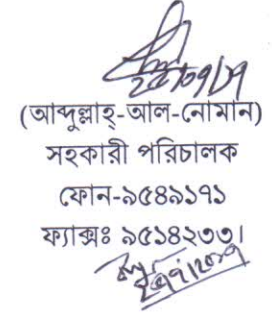 (আব্দুল্লাহ্-আল-নোমান)
সহকারী পরিচালক
ফোন-৯৫৪৯১৭১
ফ্যাক্সঃ ৯৫১৪২৩৩।